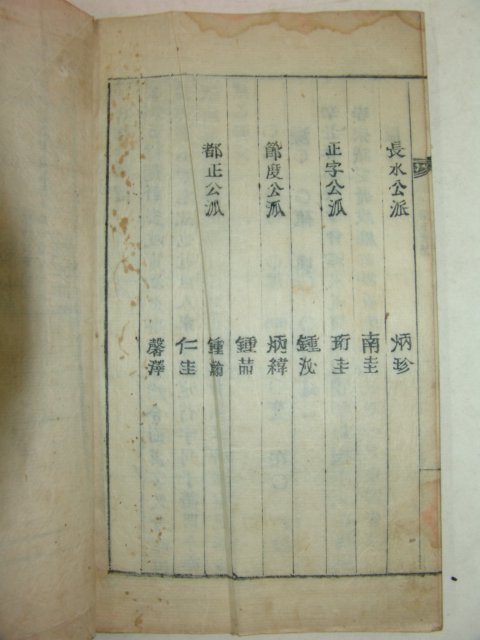 長水公派 炳珍
南圭
正字公派 珩圭
鍾汝
節度公派 炳緯
鍾喆
都正公派 鍾翰
仁圭
馨澤